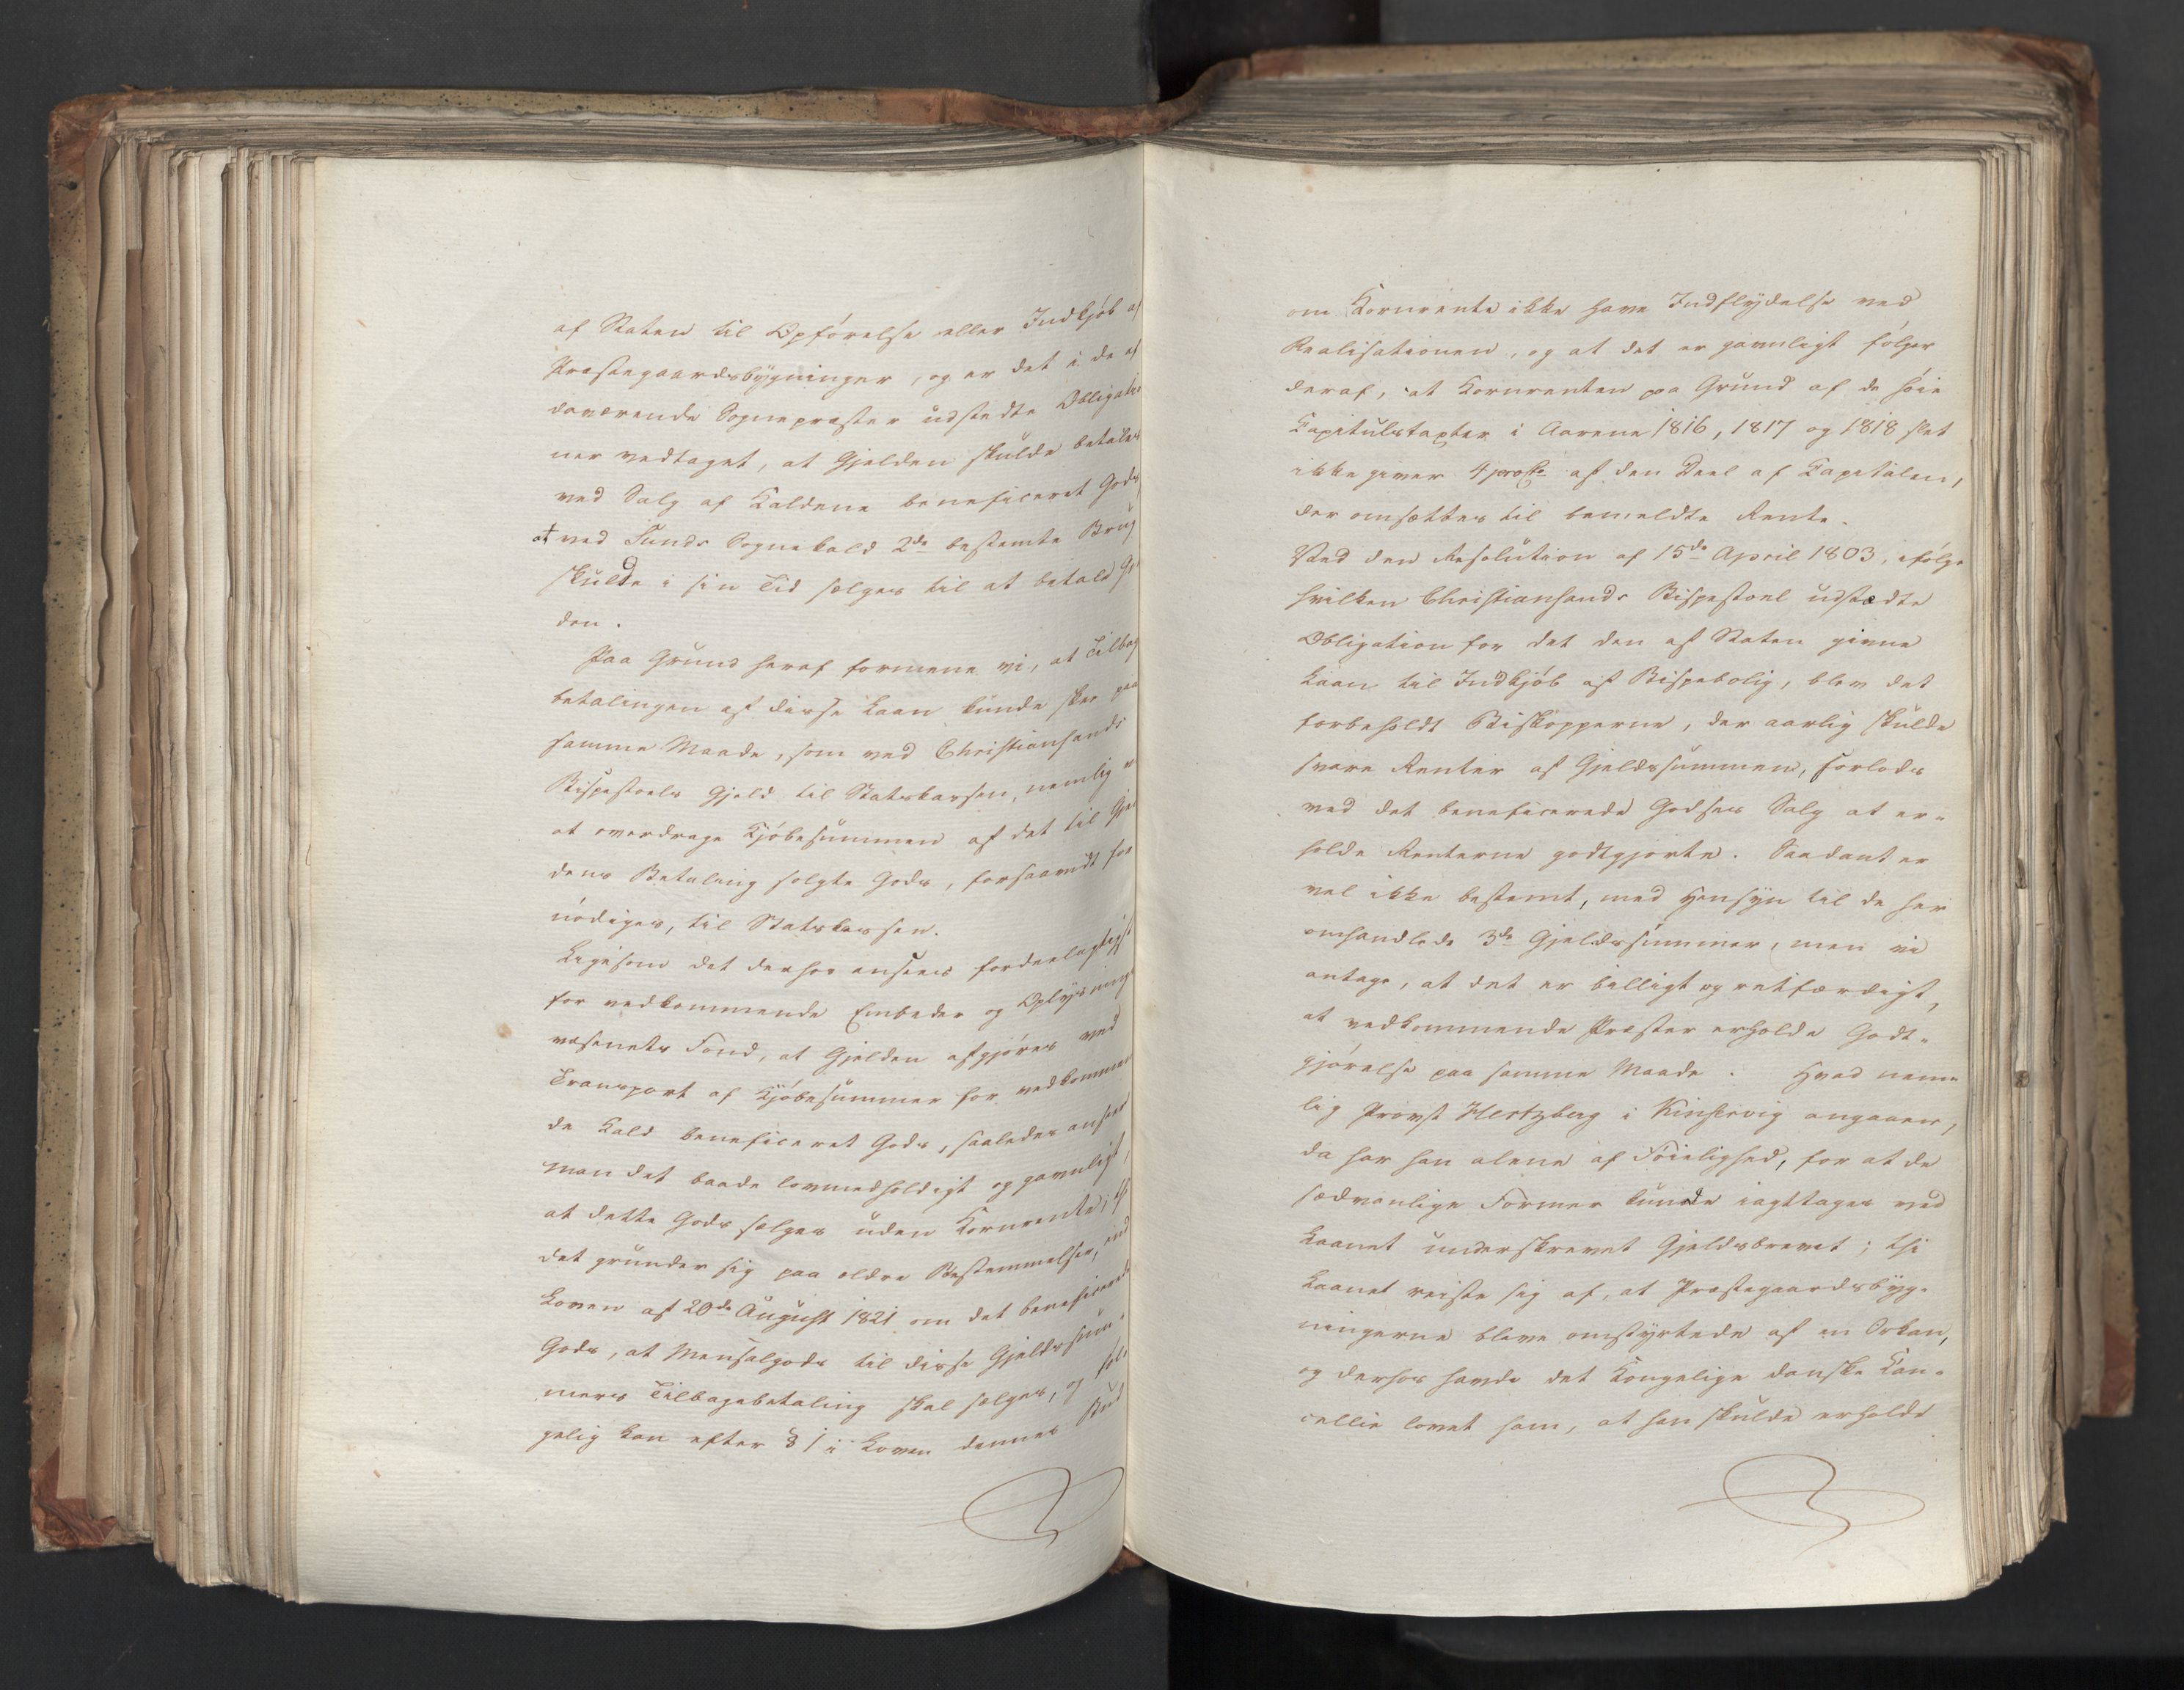 af Staten til Opførelse eller Indkjøb af
Præstegaardsbygninger, og er det i de af
daværende Sognepræster udstedte Obligatio
ner vedtaget, at Gjelden skulde betales
ved Salg af Kaldene beneficeret Gods,
at ved Sunds Sognekald 2de bestemte Brug
skulde i sin Tid sælges til at betale Gj
den.
Paa Grund heraf formene vi, at Tilbage
betalingen af disse Laan kunde skee paa
samme Maade, som ved Christiansands
Bispestoels Gjeld til Statskassen, nemlig v
at overdrage Kjøbesummen af det til Gjel
dens Betaling solgte Gods, forsaavidt for
nødiges, til Statskassen.
Ligesom det derhos ansees fordeelagtigst
for vedkommende Embeder og Oplysnings
væsenets Fond, at Gjelden afgjøres ved
Transport af Kjøbesummer for vedkommen
de Kald beneficeret Gods, saaledes anseer
man det baade lovmedholdigt og gavnligt,
at dette Gods sælges uden Kornrente; th
det grunder sig paa ældre Bestemmelser, end
Loven af 20de August 1821 om det beneficerede
Gods, at Mensalgods til disse Gjeldssum-
mers Tilbagebetaling skal sælges, og føl-
gelig kan efter § 1 i Loven dennes Bud
om Kornrente ikke have Indflydelse ved
Realisationen, og at det er gavnligt følger
deraf, at Kornrenten paa Grund af de høie
Kapitulstaxter i Aarene 1816, 1817 og 1818 slet
ikke giver 4 proCto af den Deel af Capitalen,
der omsættes til bemeldte Rente.
Ved den Resolution af 15de April 1803, ifølge
hvilken Christiansands Bispestoel udstædte
Obligation for det den af Staten givne
Laan til Indkjøb af Bispebolig, blev det
forbeholdt Biskopperne, der aarlig skulde
svare Renter af Gjeldssummen, forlods
ved det beneficerede Godses Salg at er-
holde Renterne godtgjorte. Saadant er
vel ikke bestemt, med Hensyn til de her
omhandlede 3de Gjeldssummer, men vi
antage, at det er billigt og retfærdigt,
at vedkommende Præster erholde Godt-
gjørelse paa samme Maade. Hvad nem-
lig Provst Hertzberg i Kinservig angaaer,
da har han alene af Føielighed, for at de
sædvanlige Former kunde iagttages ved
Laanet underskrevet Gjeldsbrevet; thi
Laanet reiste sig af, at Præstegaardsbyg-
ningerne bleve omstyrtede af en Orkan,
og derhos havde det Kongelige danske Can-
cellie lovet ham, at han skulde erholde